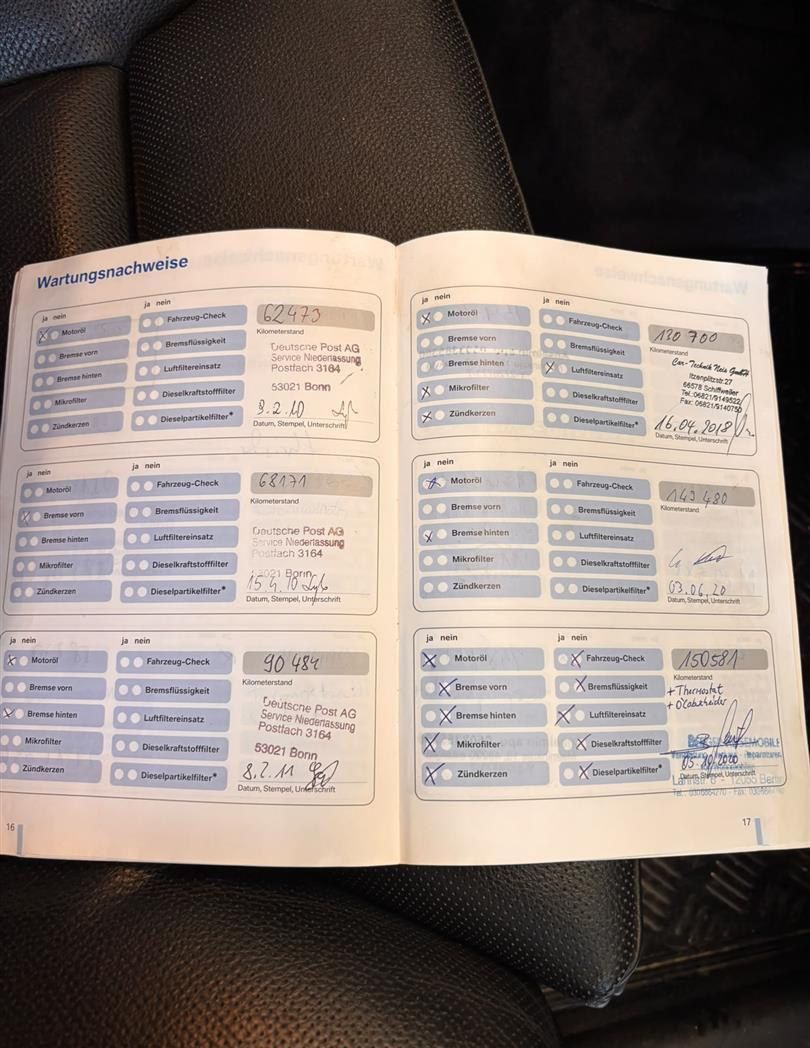 Wartungsnachweise
ja nein
ja nein
Motoröl
Fahrzeug-Check
62473
Bremse vorn
Bremsflüssigkeit
Kilometerstand
Bremse hinten
Luftfiltereinsatz
Deutsche Post AG
Service Niederlassung
Postfach 3164
Mikrofilter
Dieselkraftstofffilter
53021 Bonn
Zündkerzen
Dieselpartikelfilter*
9.2.10
Datum, Stempel, Unterschrift
ja nein
ja nein
Motoröl
Fahrzeug-Check
68171
Bremse vorn
Bremsflüssigkeit
Kilometerstand
Bremse hinten
Luftfiltereinsatz
Deutsche Post AG
Service Niederlassung
Postfach 3164
Mikrofilter
Dieselkraftstofffilter
53021 Bonn
Zündkerzen
Dieselpartikelfilter*
15.4.10
Datum, Stempel, Unterschrift
ja nein
ja nein
Motoröl
Fahrzeug-Check
90484
Bremse vorn
Bremsflüssigkeit
Kilometerstand
Bremse hinten
Luftfiltereinsatz
Deutsche Post AG
Service Niederlassung
Postfach 3164
Mikrofilter
Dieselkraftstofffilter
53021 Bonn
Zündkerzen
Dieselpartikelfilter*
8.2.11
Datum, Stempel, Unterschrift
16
ja nein
ja nein
Motoröl
Fahrzeug-Check
130700
Bremse vorn
Bremsflüssigkeit
Kilometerstand
Bremse hinten
Luftfiltereinsatz
Car-Technik Neis GmbH
Itzenplitzstr.27
66578 Schiffweiler
Tel.:06821/9149522
Fax: 06821/9140750
Mikrofilter
Dieselkraftstofffilter
Zündkerzen
Dieselpartikelfilter*
16.04.2018
Datum, Stempel, Unterschrift
ja nein
ja nein
Motoröl
Fahrzeug-Check
143480
Bremse vorn
Bremsflüssigkeit
Kilometerstand
Bremse hinten
Luftfiltereinsatz
Mikrofilter
Dieselkraftstofffilter
Zündkerzen
Dieselpartikelfilter*
03.06.20
Datum, Stempel, Unterschrift
ja nein
ja nein
Motoröl
Fahrzeug-Check
150581
Bremse vorn
Bremsflüssigkeit
Kilometerstand
+ Thermostat
+ Ölabscheider
Bremse hinten
Luftfiltereinsatz
Mikrofilter
Dieselkraftstofffilter
Zündkerzen
Dieselpartikelfilter*
Datum, Stempel, Unterschrift
17